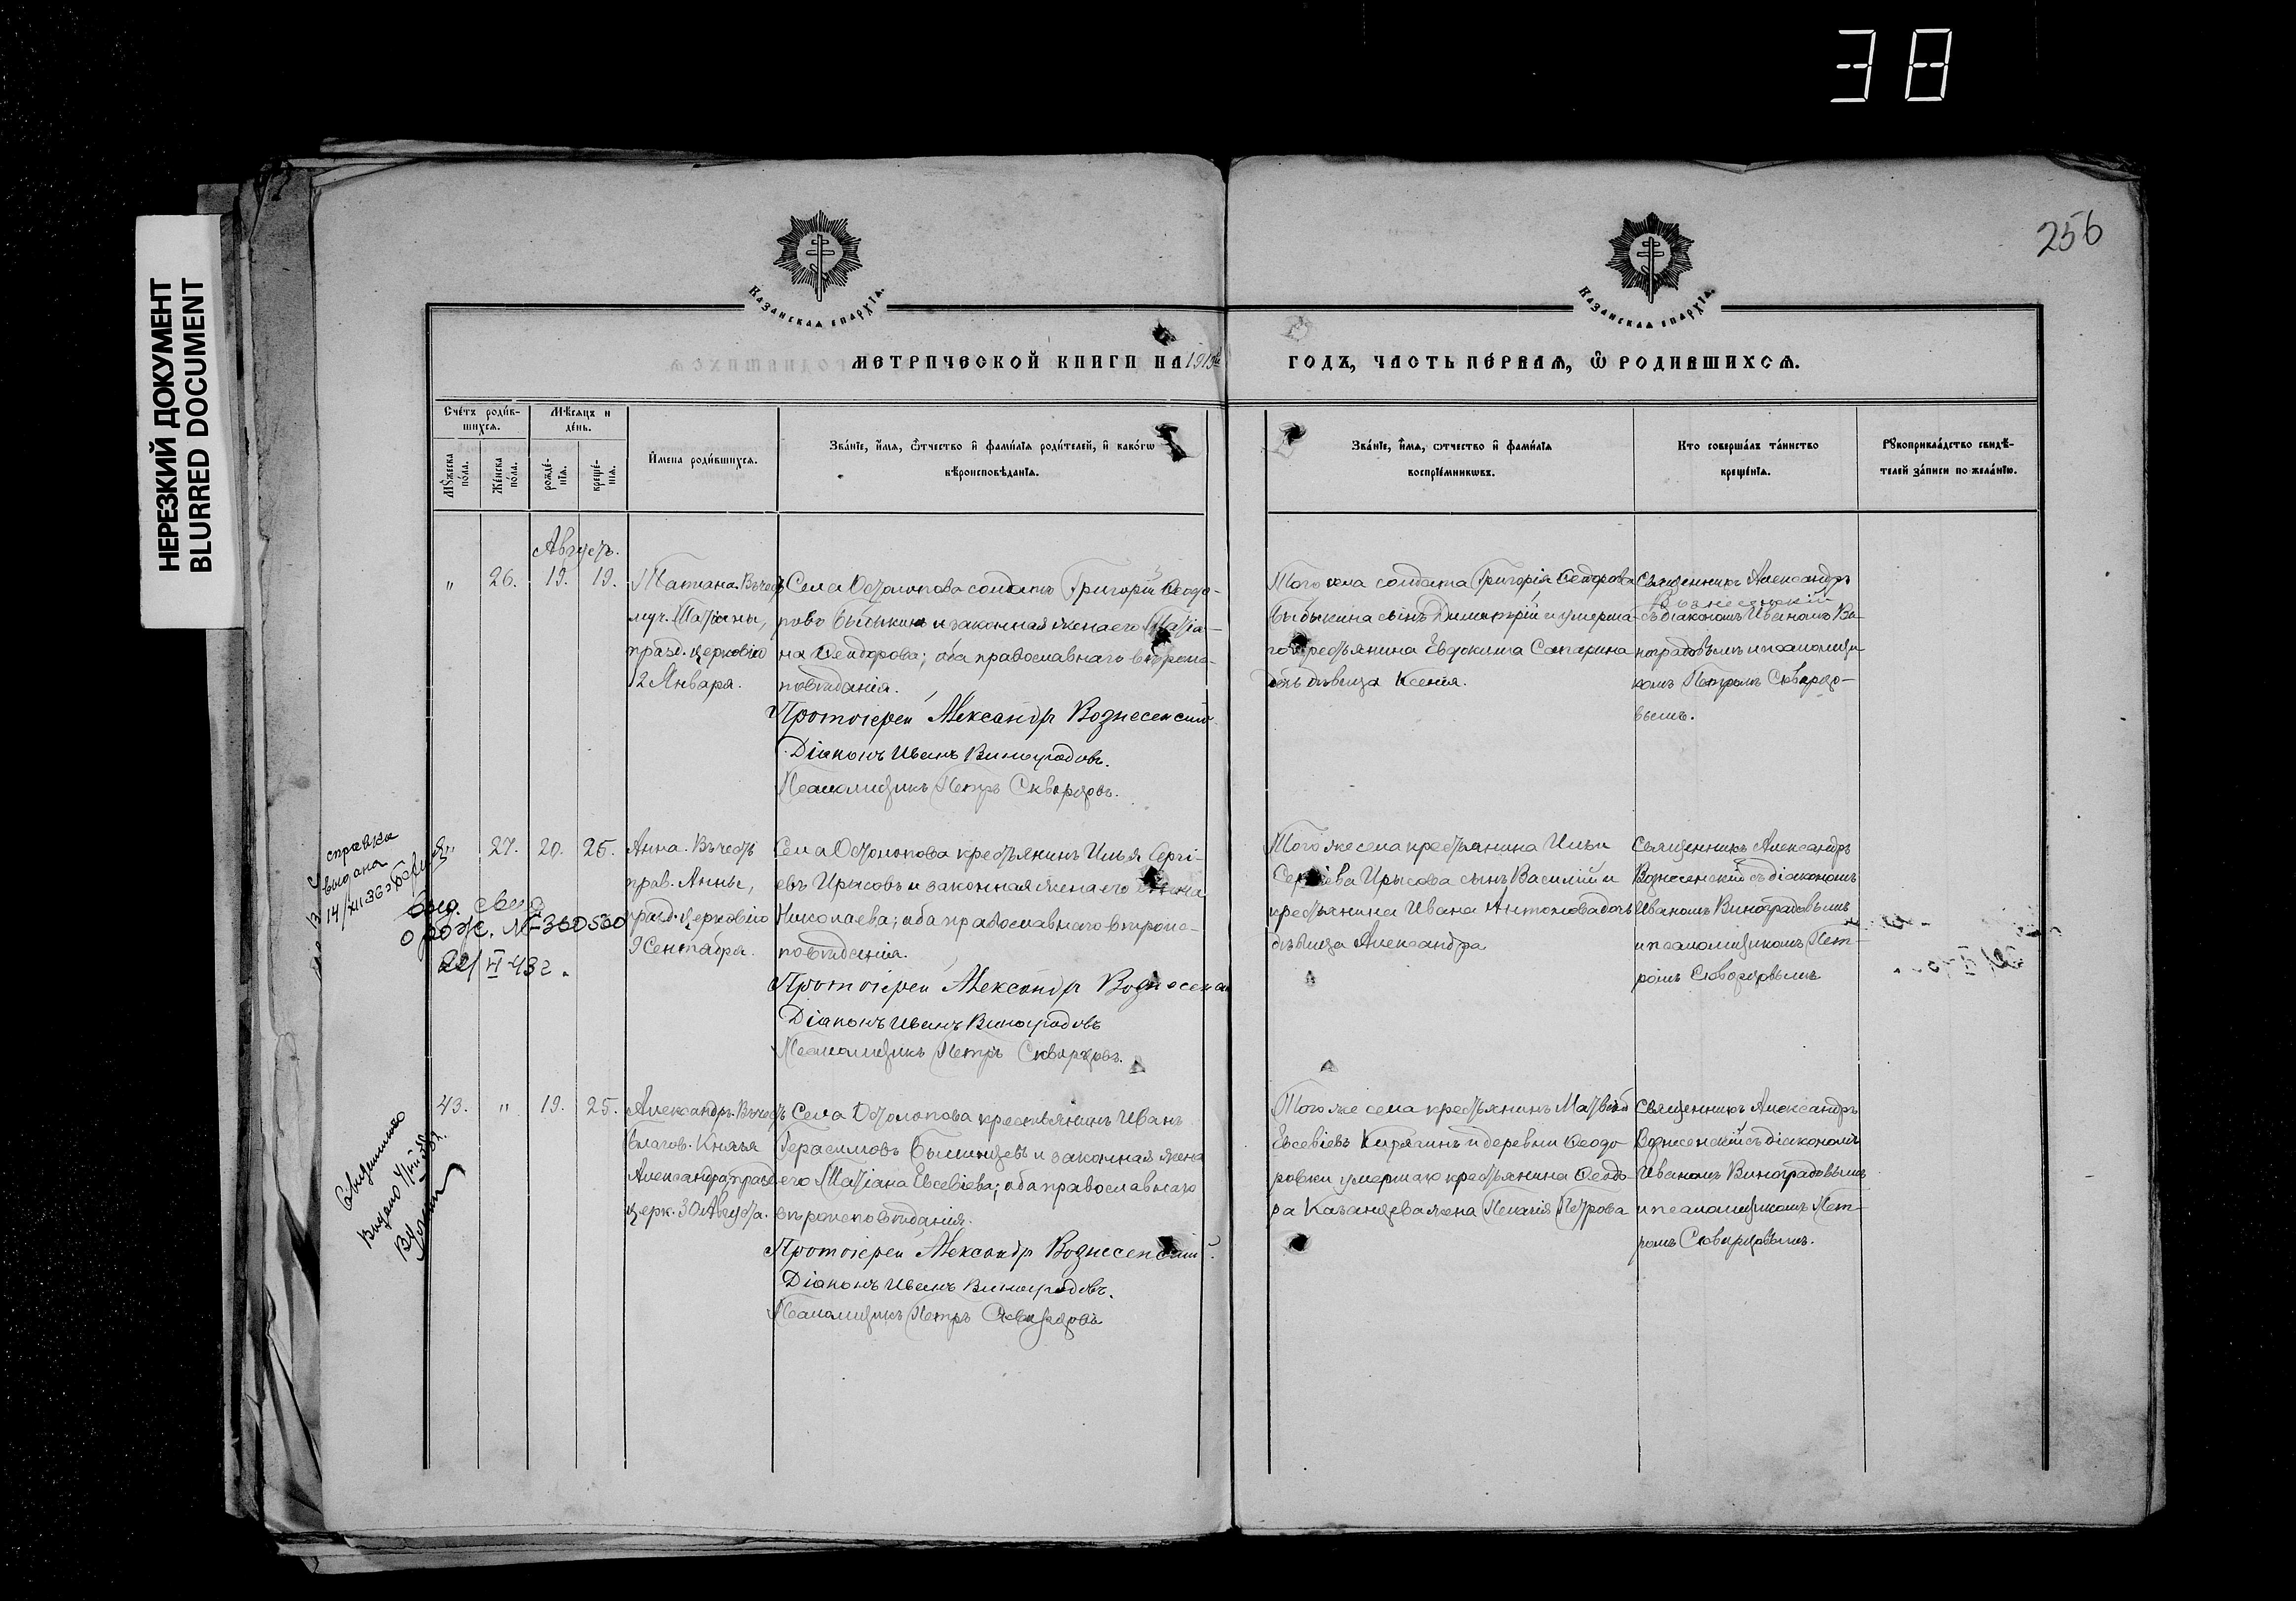 38
НЕРЕЗКИЙ ДОКУМЕНТ
BLURRED DOCUMENT
256
КАЗАНСКАѦ ЕПАРХІѦ.
КАЗАНСКАѦ ЕПАРХІѦ.
МЕТРИЧЕСКОЙ КНИГИ НА 1919й ГОДЪ, ЧАСТЬ ПЕ́РВАѦ, Ѽ РОДИВШИХСѦ.
Сче́тъ роди́в-
шихсѧ.
Мѣ́сѧцъ и
де́нь.
Мꙋ́жеска
по́ла.
Же́нска
по́ла.
рожде́-
нїѧ.
креще́-
нїѧ.
И҆мена роди́вшихсѧ.
Зва́нїе, и҆́мѧ, ѻ҆́тчество и҆ фами́лїѧ роди́телей, и҆ како́гѡ
вѣроисповѣ́данїѧ.
Зва́нїе, и҆́мѧ, ѻ҆́тчество и҆ фами́лїѧ
воспрїе́мникѡвъ.
Кто соверша́лъ та́инство
креще́нїѧ.
Рꙋкоприкла́дство свидѣ́-
телей за́писи по жела́нїю.
Августъ.
" 26. 19. 19.
Татіана. Въ честь
муч. Татіаны,
празд. церковію
12 Января.
Села Остолопова солдатъ Григорій Ѳеодо-
ровъ и законная жена его Татіа-
на Ѳеодорова; оба православнаго вѣроис-
повѣданія.
Протоіерей Александръ Вознесенскій.
Діаконъ Иванъ Виноградовъ.
Псаломщикъ Петръ Скворцовъ.
Того села солдата Григорія Ѳеодорова
сынъ Димитрій и умерша-
го крестьянина Евдокима Сапарина
дочь дѣвица Ксенія.
Священникъ Александръ
Вознесенскій
съ діакономъ Иваномъ Ви-
ноградовымъ и псаломщи-
комъ Петромъ Скворцо-
вымъ.
справка
выдана
" 27. 20. 25.
Анна. Въ честь
прав. Анны,
празд. церковію
9 Сентября.
Села Остолопова крестьянинъ Илья Сергі-
евъ Ирысовъ и законная жена его
Николаева; оба православнаго вѣроис-
повѣданія.
Протоіерей Александръ Вознесенскій
Діаконъ Иванъ Виноградовъ
Псаломщикъ Петръ Скворцовъ.
Того же села крестьянина Ильи
Сергіева Ирысова сынъ Василій и
крестьянина Ивана Антонова дочь
дѣвица Александра
Священникъ Александръ
Вознесенскій съ діакономъ
Иваномъ Виноградовымъ
и псаломщикомъ Пет-
ромъ Скворцовымъ
о рож. № 360560
43 г.
Выдано
43. " 19. 25.
Александръ. Въ честь
благов. Князя
Александра, празд.
церк. 30 Августа.
Села Остолопова крестьянинъ Иванъ
Герасимовъ и законная жена
его Татіана Евсевіева; оба православнаго
вѣроисповѣданія.
Протоіерей Александръ Вознесенскій.
Діаконъ Иванъ Виноградовъ.
Псаломщикъ Петръ Скворцовъ
Того же села крестьянинъ Матвѣй
Евсевіевъ и деревни Ѳеодо-
ровки умершаго крестьянина Ѳеодо-
ра Казанцева жена Пелагія Петрова
Священникъ Александръ
Вознесенскій съ діакономъ
Иваномъ Виноградовымъ
и псаломщикомъ Пет-
ромъ Скворцовымъ.